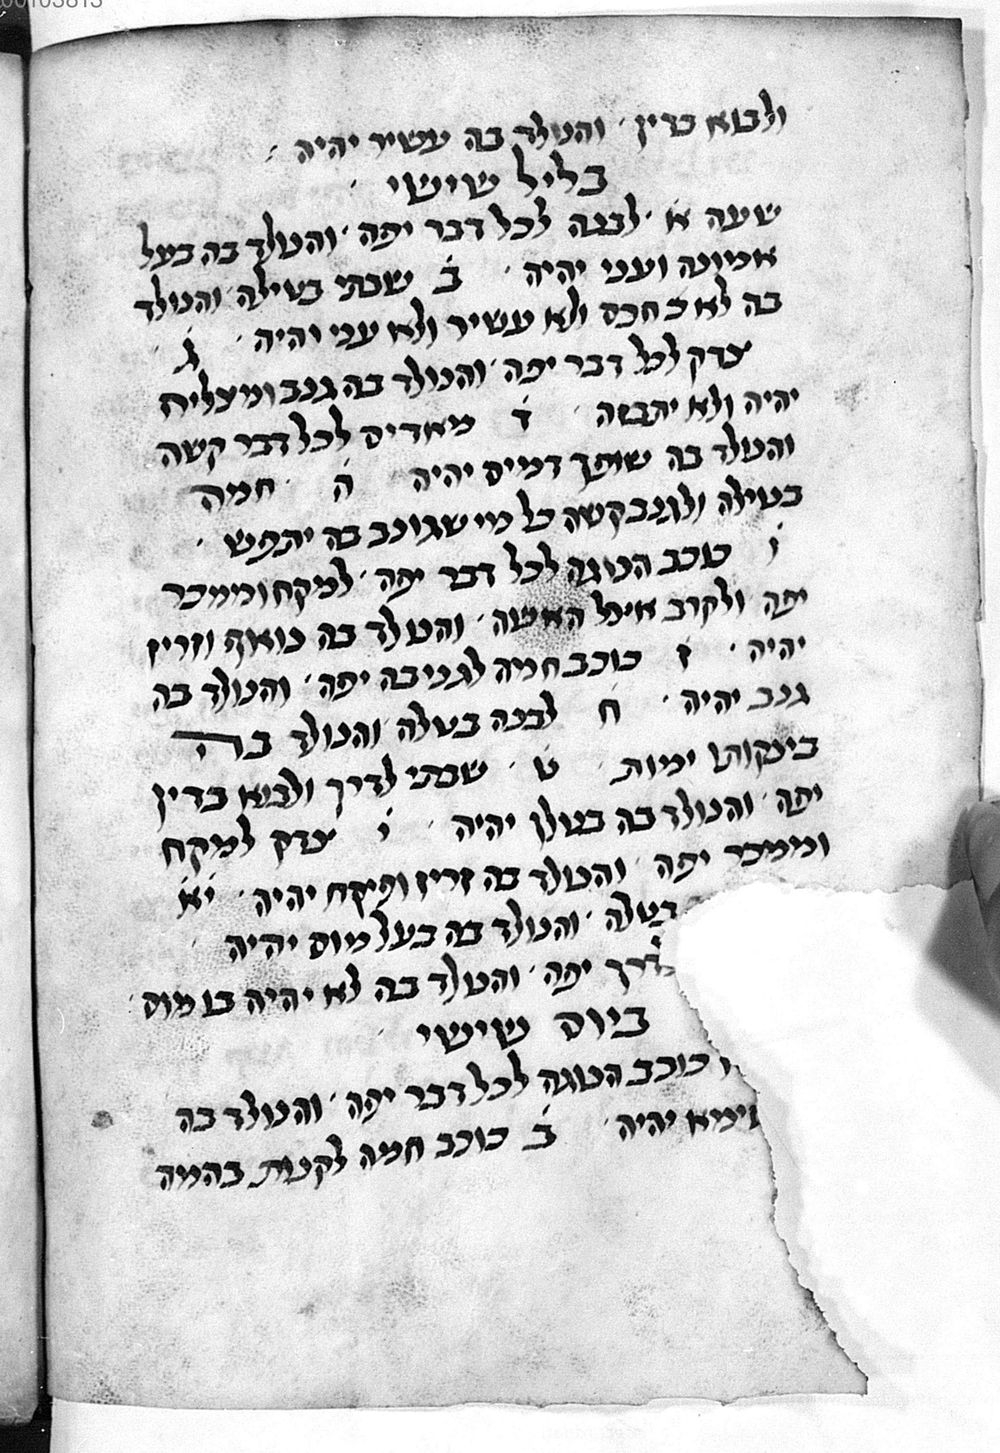 00103813
ולבוא בדין והנולד בה עשיר יהיה
בליל שישי
שעה א לבנה לכל דבר יפה והנולד בה בעל
אמונה ועני יהיה ב שבתי בטילה והנולד
בה לא חכם ולא עשיר ולא עני יהיה ג
צדק לכל דבר יפה והנולד בה גנב ומצליח
יהיה ולא יתבשה ד מאדים לכל דבר קשה
והנולד בה שופך דמים יהיה ה חמה
בטילה ולגנב קשה כל מי שגונב בה יתפש
ו כוכב הנוגה לכל דבר יפה למקח וממכר
יפה ולקרב אצל האשה והנולד בה נואף וזריז
יהיה ז כוכב חמה לגניבה יפה והנולד בה
גנב יהיה ח לבנה בטלה והנולד בה
בינקותו ימות ט שבתי לדרך ולבוא בדין
יפה והנולד בה בטלן יהיה י צדק למקח
וממכר יפה והנולד בה זריז ופיקח יהיה יא
בטלה והנולד בה בעל מום יהיה
לדרך יפה והנולד בה לא יהיה בו מום
ביום שישי
כוכב הנוגה לכל דבר יפה והנולד בה
יהיה ב כוכב חמה לקנות בהמה